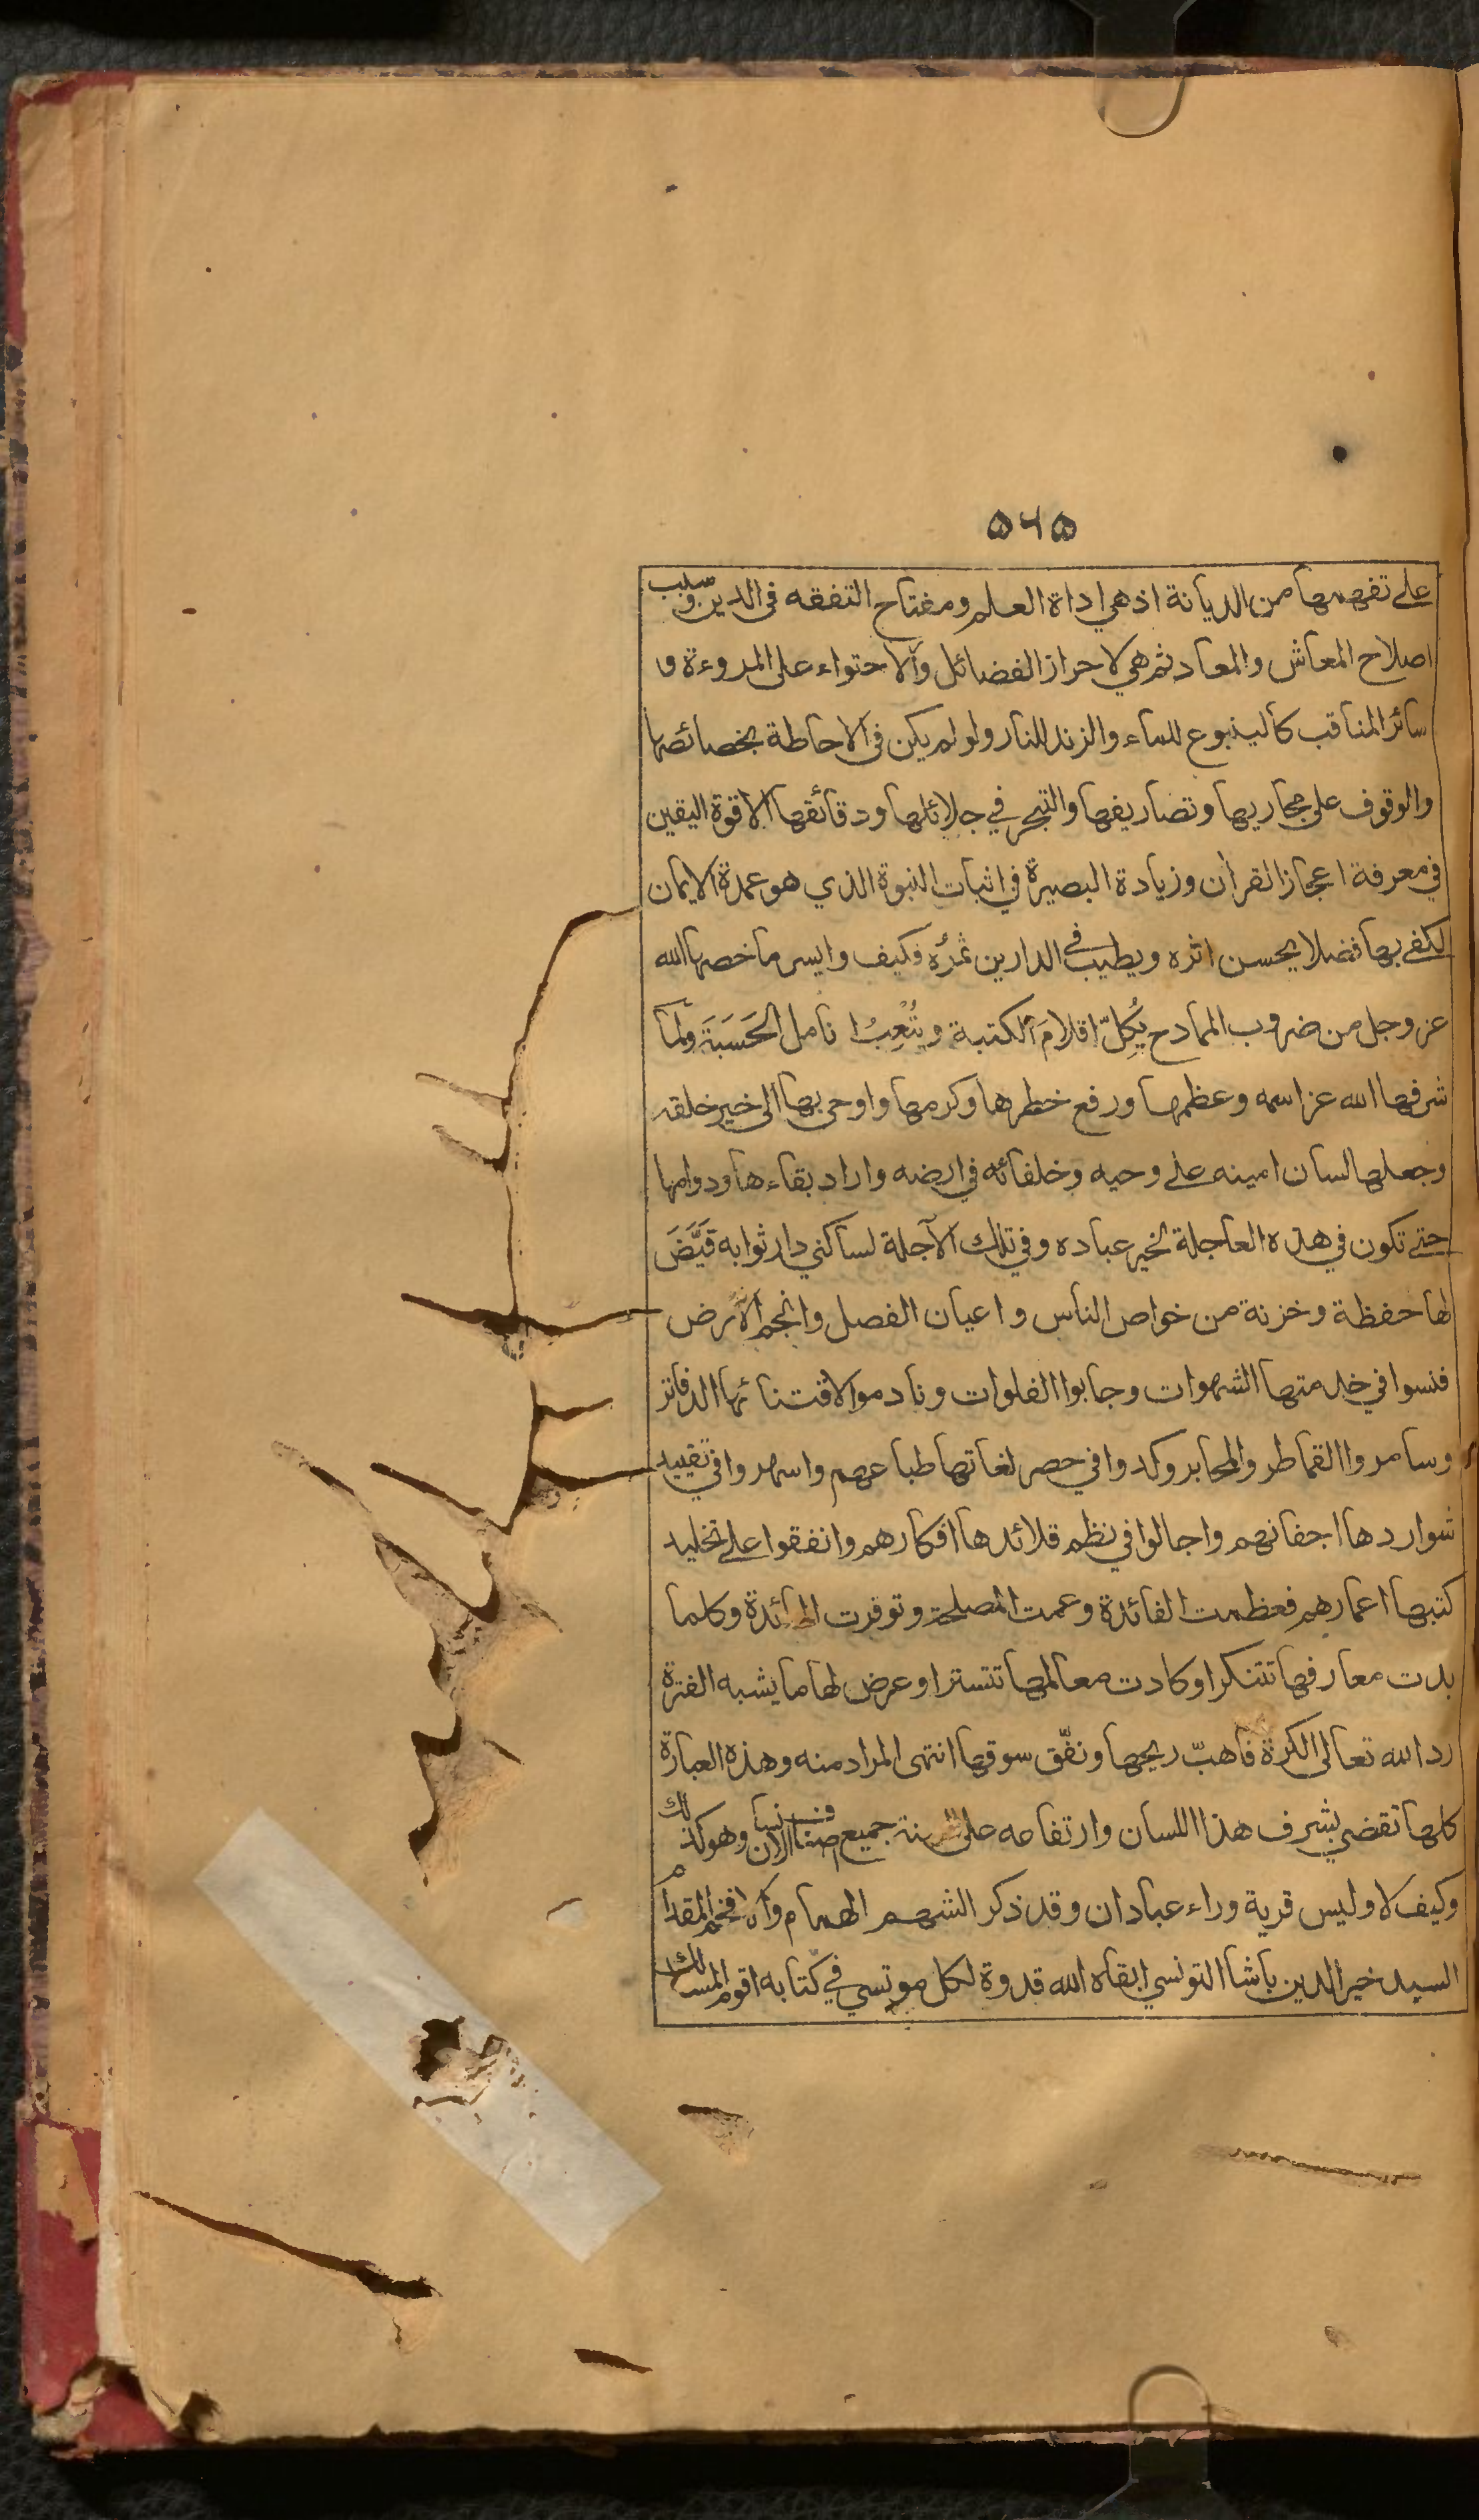 ۵۶۵
علے تفهمها من الديانة اذ هي اداة العلم ومفتاح التفقه فى الدين وسبب
اصلاح المعاش والمعاد ثم هي لاحراز الفضائل والاحتواء على المروءة و
سائر المناقب كالينبوع للماء والزند للنار ولو لم يكن فى الاحاطة بخصائصها
والوقوف على مجاريها وتصاريفها والتبحر في جلائلها ودقائقها الا قوة اليقين
في معرفة اعجاز القرأن وزيادة البصيرة في اثبات النبوة الذي هو عمدة الايمان
لكفے بها فضلا يحسن اثره ويطيب فے الدارين ثمرُه فكيف وايسر ما خصها الله
عز وجل من ضروب الممادح يُكِلّ اقلامَ الكتبة ويُتْعِبُ انامل الحَسَبَةَ ولما
شرفها الله عز اسمه وعظمها ورفع خطرها وكرمها واوحى بها الى خير خلقه
وجعلها لسان امينه علے وحيه وخلفائه في ارضه واراد بقاءها ودوامها
حتے تكون في هذه العاجلة لخير عباده وفي تلك الآجلة لساكني دار ثوابه قَيَّضَ
لها حفظة وخزنة من خواص الناس واعيان الفصل وانجم الارض
فنسوا في خدمتها الشهوات وجابوا الفلوات ونادموا لاقتنائها الدفاتر
وسامروا القماطر والمحابر وكدوا في حصر لغاتها طباعهم واسهروا في تقييد
شواردها اجفانهم واجالوا في نظم قلائدها افكارهم وانفقوا علے تخليد
كتبها اعمارهم فعظمت الفائدة وعمت المصلحة وتوفرت العائدة وكلما
بدت معارفها تتنكر او كادت معالمها تتستر او عرض لها ما يشبه الفترة
رد الله تعالى الكرة فاهبّ ريحها ونفّق سوقها انتهى المراد منه وهذه العبارة
كلها تقضي بشرف هذا اللسان وارتفاعه على السنة جميع اصناف الانسان وهو كذلك
وكيف لا وليس قرية وراء عبادان وقد ذكر الشهم الهمام والافخم المقدام
السيد خير الدين باشا التونسي ابقاه الله قدوة لكل موتسي في كتابه اقوم المسالك